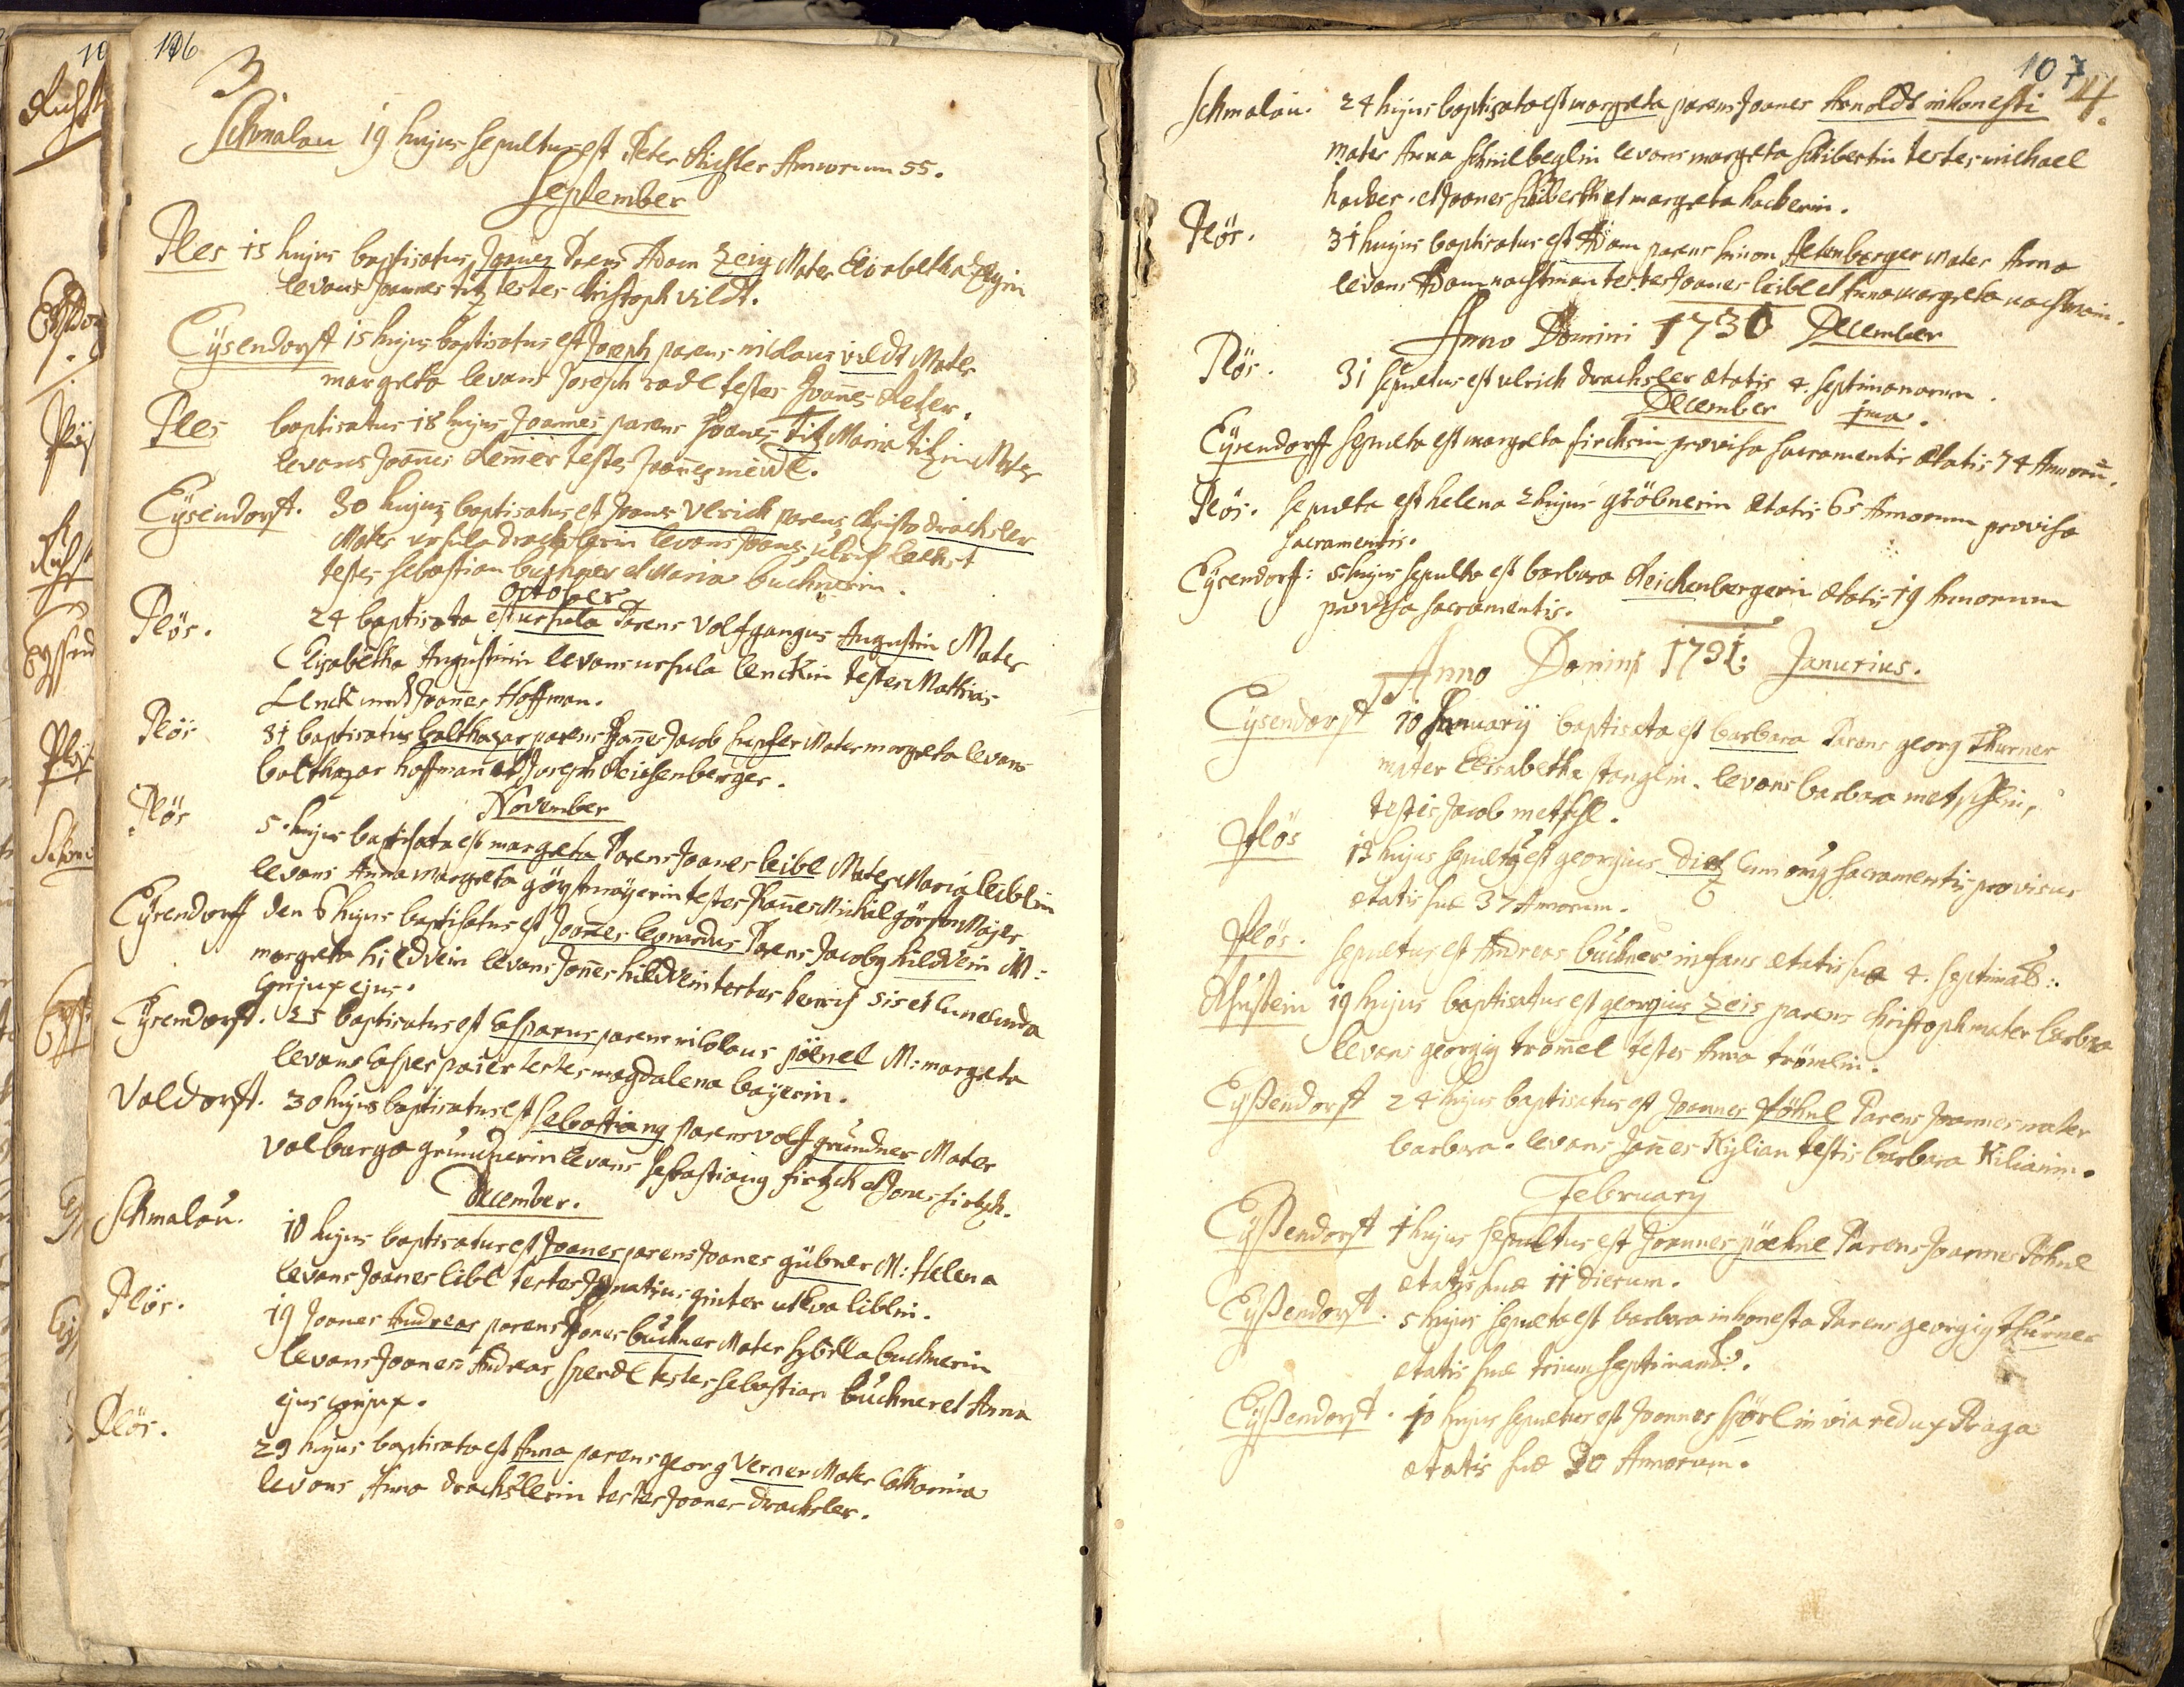 106
3
Schmalau 19 hujus sepultus est Peter Richter Annorum 55.
September
Ples 15 hujus baptisatus Joannes Parens Adam Zeis Mater Elisabetha
levans Joannes titz testes Christoph vildt.
Eysendorff 15 hujus baptisatus est Joseph parens nicolaus vildt Mater
margreta levans Joseph radl testes Joannes
Ples baptisatus 18 hujus Joannes parens Joanes Titz Maria titzin Mater
levans Joannes Lemer testes Joannes meidl.
Eysendorff. 30 hujus baptisatus est Joans Ulrich parens Christo drachsler
Mater ursula drachslerin levans Joans ulrich
testes sebastian buchner et Maria buchnerin.
October
Plös. 24 baptisata est ursula Parens Volfgangus Augustin Mater
Elisabetha Augustinin levans ursula lenckin testes Mathias
Lenck und Joannes Hoffman.
Plös 31 baptisatus balthazar parens Joannes Jacob hupfer Mater margreta levans
balthazar hoffman et Joseph Reichenberger.
November
Plös 5. hujus baptisata est margreta Parens Joanes leibl Mater Maria leiblin
levans Anna margreta göystmayerin testes Joannes Michäl
Eysendorff den 6 hujus baptisatus est Joannes leonardus Parens Jacobus hildvein M:
margreta hildvein levans Jones hildvein testes henrich sis et Cunecunda
conjux ejus.
Eysendorff. 25 baptisatus est Casparus parens nicolaus pöenel M: margreta
levans Casper paier testes magdalena bayerin.
Valdorff. 30 hujus baptisatus est sebastiang parens volf grundner Mater
valburga grundnerin levans sebastiang firtzch et Jones firtzch.
December.
Schmalau. 10 hujus baptisatus est Joanes parens Joanes gübner M: Helena
levans Joanes libl testes Ignatius ginter ut Eva liblin.
Plös. 19 Joanes Andreas parens Joanes buchner Mater Sybilla buchnerin
levans Joanes Andreas sperdl testes sebastian buchner et Anna
ejus conjux.
Plös. 29 hujus baptisata est Anna parens georg Verner Mater Catharina
levans Anna drachslerin testes Joanes drachsler.
107
4.
Schmalau. 24 hujus baptisata est margreta parens Joanes Arnoldt inhonesti
mater Anna levans margreta schibertin testes michael
hacker et Joanes schiberth et margreta hackerin.
Plös. 31 hujus baptisatus est Adam parens simon Mater Anna
levans Adam nachtman testes Joanes leibl et Anna margreta nachtmanin.
Anno Domini 1730 December
Plös. 31 sepultus est ulrich drachsler ætatis 4. septimanarum.
December 1ma.
Eysendorff sepulta est margreta firchsin provisa sacramentis Ætatis 74 Annorū.
Plös. sepulta est helena 2 hujus gröbnerin Ætatis 65 Annorum provisa
sacramentis.
Eysendorff: 5 hujus sepulta est barbara Reichenbergerin ætatis 19 Annorum
provisa sacramentis.
Anno Domini 1731: Janurius.
Eysendorff 10 Januarij baptisata est barbara Parens georg Thurner
mater Elisabetha stanglin. levans barbara metschlin,
testis Jacob metschl.
Plös 13 hujus sepultus est georgius Dietz cum omis sacramentis provisus
ætatis suæ 37 Annorum.
Plös. sepultus est Andreas buchner infans ætatis suæ 4. septimaō:
19 hujus baptisatus est georgius Zeis parens Christoph mater barbara
levans georgig trömel testes Anna trömlin.
Eyßendorff 24 hujus baptisatus est Joannes pöhnl Parens Joannes mater
barbara. levans Jones Kylian testis barbara Kilianin.
February
Eyßendorff 4 hujus sepultus est Joannes pöehnl Parens Joannes Pöhnl
ætatis suæ 11 dierum.
Eyßendorff. 5 hujus sepulta est barbara inhonesta Parens georgig thurner
ætatis suæ trium septimanarū.
Eyßendorff. 10 hujus sepultus est Joannes spörl in via redux Praga
ætatis suæ 30 Annorum.